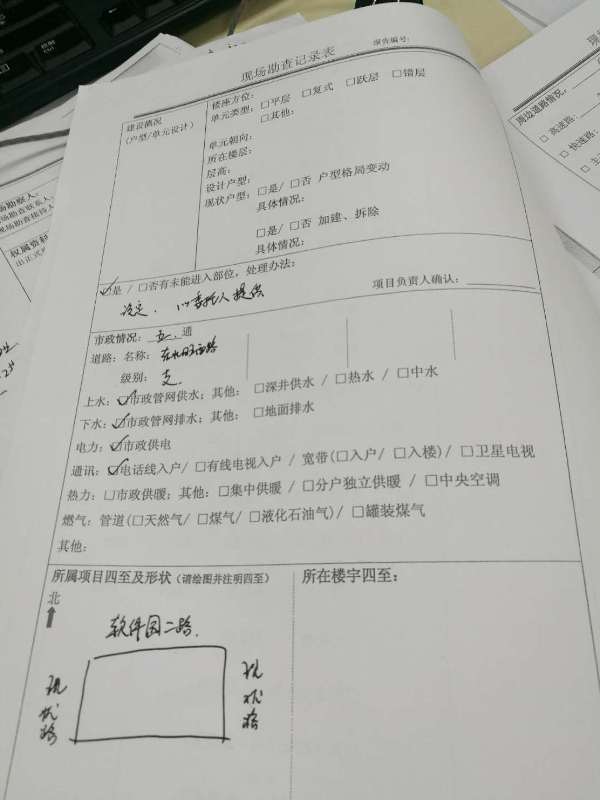 现场勘查记录表
报告编号:
建设概况
(户型/单元设计)
楼座方位:
单元类型: □平层 □复式 □跃层 □错层
□其他:
单元朝向:
所在楼层:
层高:
设计户型:
现状户型: □是/ □否 户型格局变动
具体情况:
□是/ □否 加建、拆除
具体情况:
☑是 / □否有未能进入部位, 处理办法:
设定, 以委托人提供
项目负责人确认:
市政情况: 五 通
道路: 名称: 东北旺西路
级别: 支
上水: ☑市政管网供水; 其他: □深井供水 / □热水 / □中水
下水: ☑市政管网排水; 其他: □地面排水
电力: ☑市政供电
通讯: ☑电话线入户/ □有线电视入户 / 宽带(□入户/ □入楼)/ □卫星电视
热力: □市政供暖; 其他: □集中供暖 / □分户独立供暖 / □中央空调
燃气: 管道(□天然气/ □煤气/ □液化石油气)/ □罐装煤气
其他:
所属项目四至及形状 (请绘图并注明四至)
所在楼宇四至:
北
软件园二路
现状路
现状路
周边道路情况,
□ 高速路:
□ 快速路: